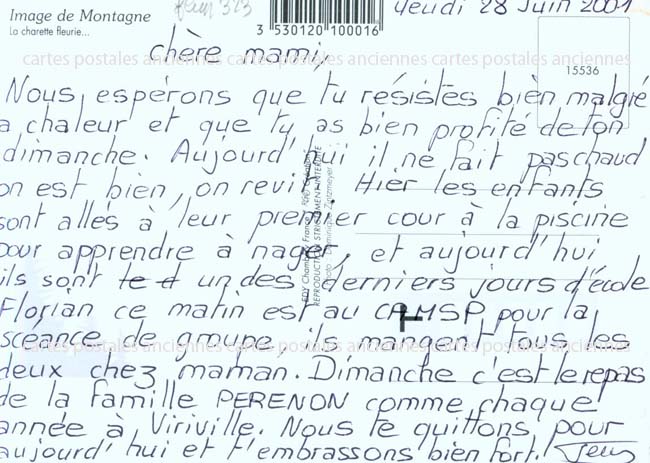 Image de Montagne
La charette fleurie...
fleur 323
3 530120 100016
Jeudi 28 Juin 2001
15536
cartes postales anciennes cartes postales anciennes cartes postales anciennes
chère mami,
Nous espérons que tu résistes bien malgré
a chaleur et que tu as bien profité de ton
dimanche. Aujourd'hui il ne fait pas chaud
on est bien, on revit. Hier les enfants
sont allés à leur premier cour à la piscine
pour apprendre à nager, et aujourd'hui
ils sont un des derniers jours d'école
Florian ce matin est au CAMSP pour la
scéance de groupe, ils mangent tous les
deux chez maman. Dimanche c'est le repas
de la famille PERENON comme chaque
année à Viriville. Nous te quittons pour
aujourd'hui et t'embrassons bien fort.
EDY Chambéry France
REPRODUCTION STRICTEMENT INTERDITE
Photo Dominique Zintzmeyer
cartes postales anciennes cartes postales anciennes cartes postales anciennes